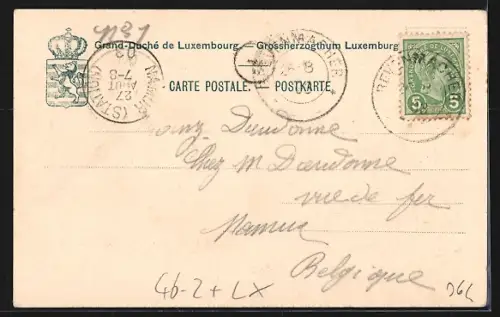 Grand-Duché de Luxembourg. Grossherzogthum Luxemburg
CARTE POSTALE. POSTKARTE.
NAMUR (STATION)
27 AOUT 7-8 03
GREVENMACHER
8
GREVENMACHER
5 5
Dieudonné
Chez M Dieudonné
rue de fer
Namur
Belgique
4b-2+LX